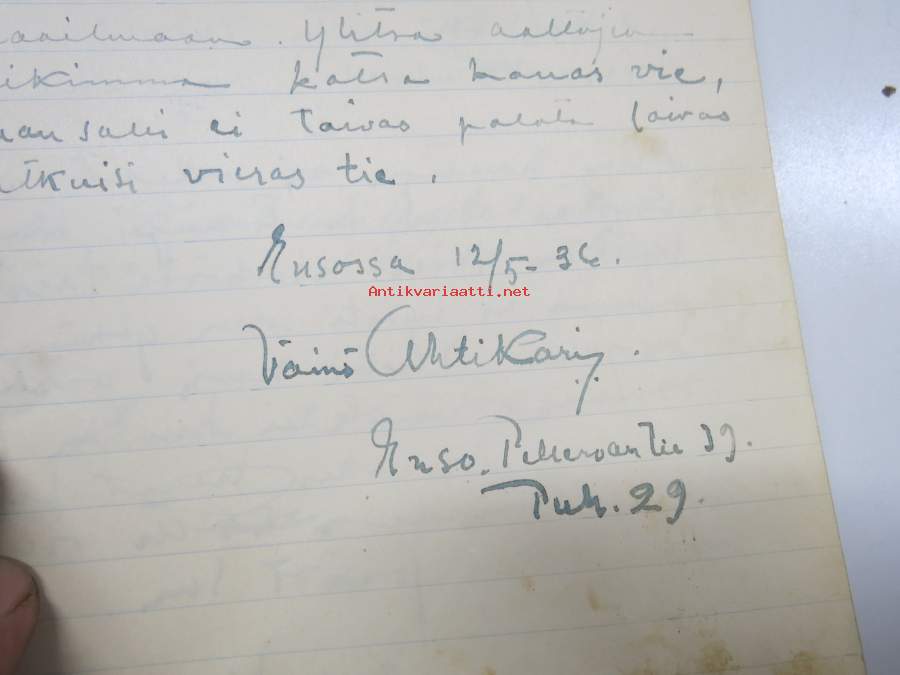 aailmaan. Ylitse aaltojen
ikimma katse kauas vie,
salli ei taivas palata laivas
vieras tie.
Ensossa 12/5-36.
Antikvariaatti.net
Väinö Ahtikari.
Enso. Pellervontie 39.
Puh. 29.